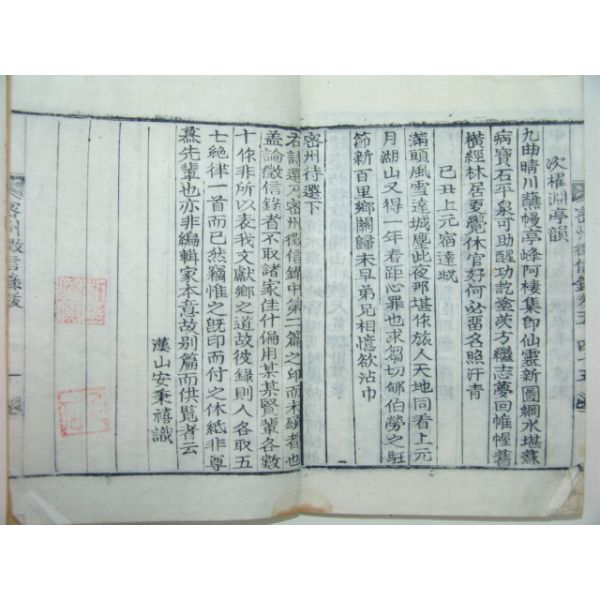 密州徵信錄卷五 四十五
次櫂淵亭韻
九曲晴川醮幔亭峰阿棲集卽仙靈新圖綱水堪蘇
病寶石平泉可助醒功訖塗茨方繼志夢回帷幄舊
橫經林居更覺休官好何必留名照汗靑
己丑上元宿達城
滿頭風雪達城塵此夜那堪作旅人天地同看上元
月湖山又得一年春距心罪也求芻切郇伯勞之駐
節新百里鄉關歸未早弟兄相憶欲沾巾
密州詩選下
右詩選乃密州徵信錄中第二篇之印而未頒者也
盖論徵信錄者不取諸家佳什偏用某某賢輩各數
十條非所以表我文獻鄕之道故彼錄則人各取五
七絶律一首而已然竊惟之旣印而付之休紙非尊
慕先輩也亦非編輯家本意故別篇而供覧者云
漢山安秉禧識
密州徵信錄跋 一